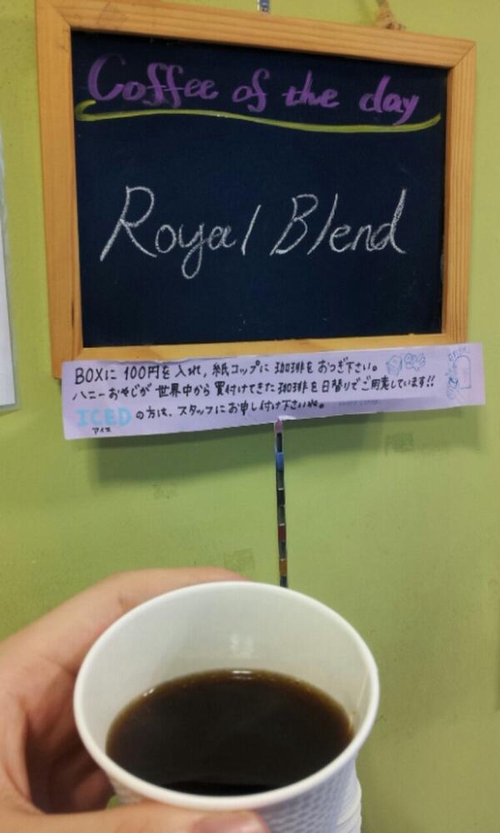 Coffee of the day
Royal Blend
BOXに 100円を入れ、紙コップに珈琲をおつぎ下さい。
ハニーおやじが世界中から買付けてきた珈琲を日替りでご用意しています!!
ICEDの方は、スタッフにお申し付け下さいね。
アイス